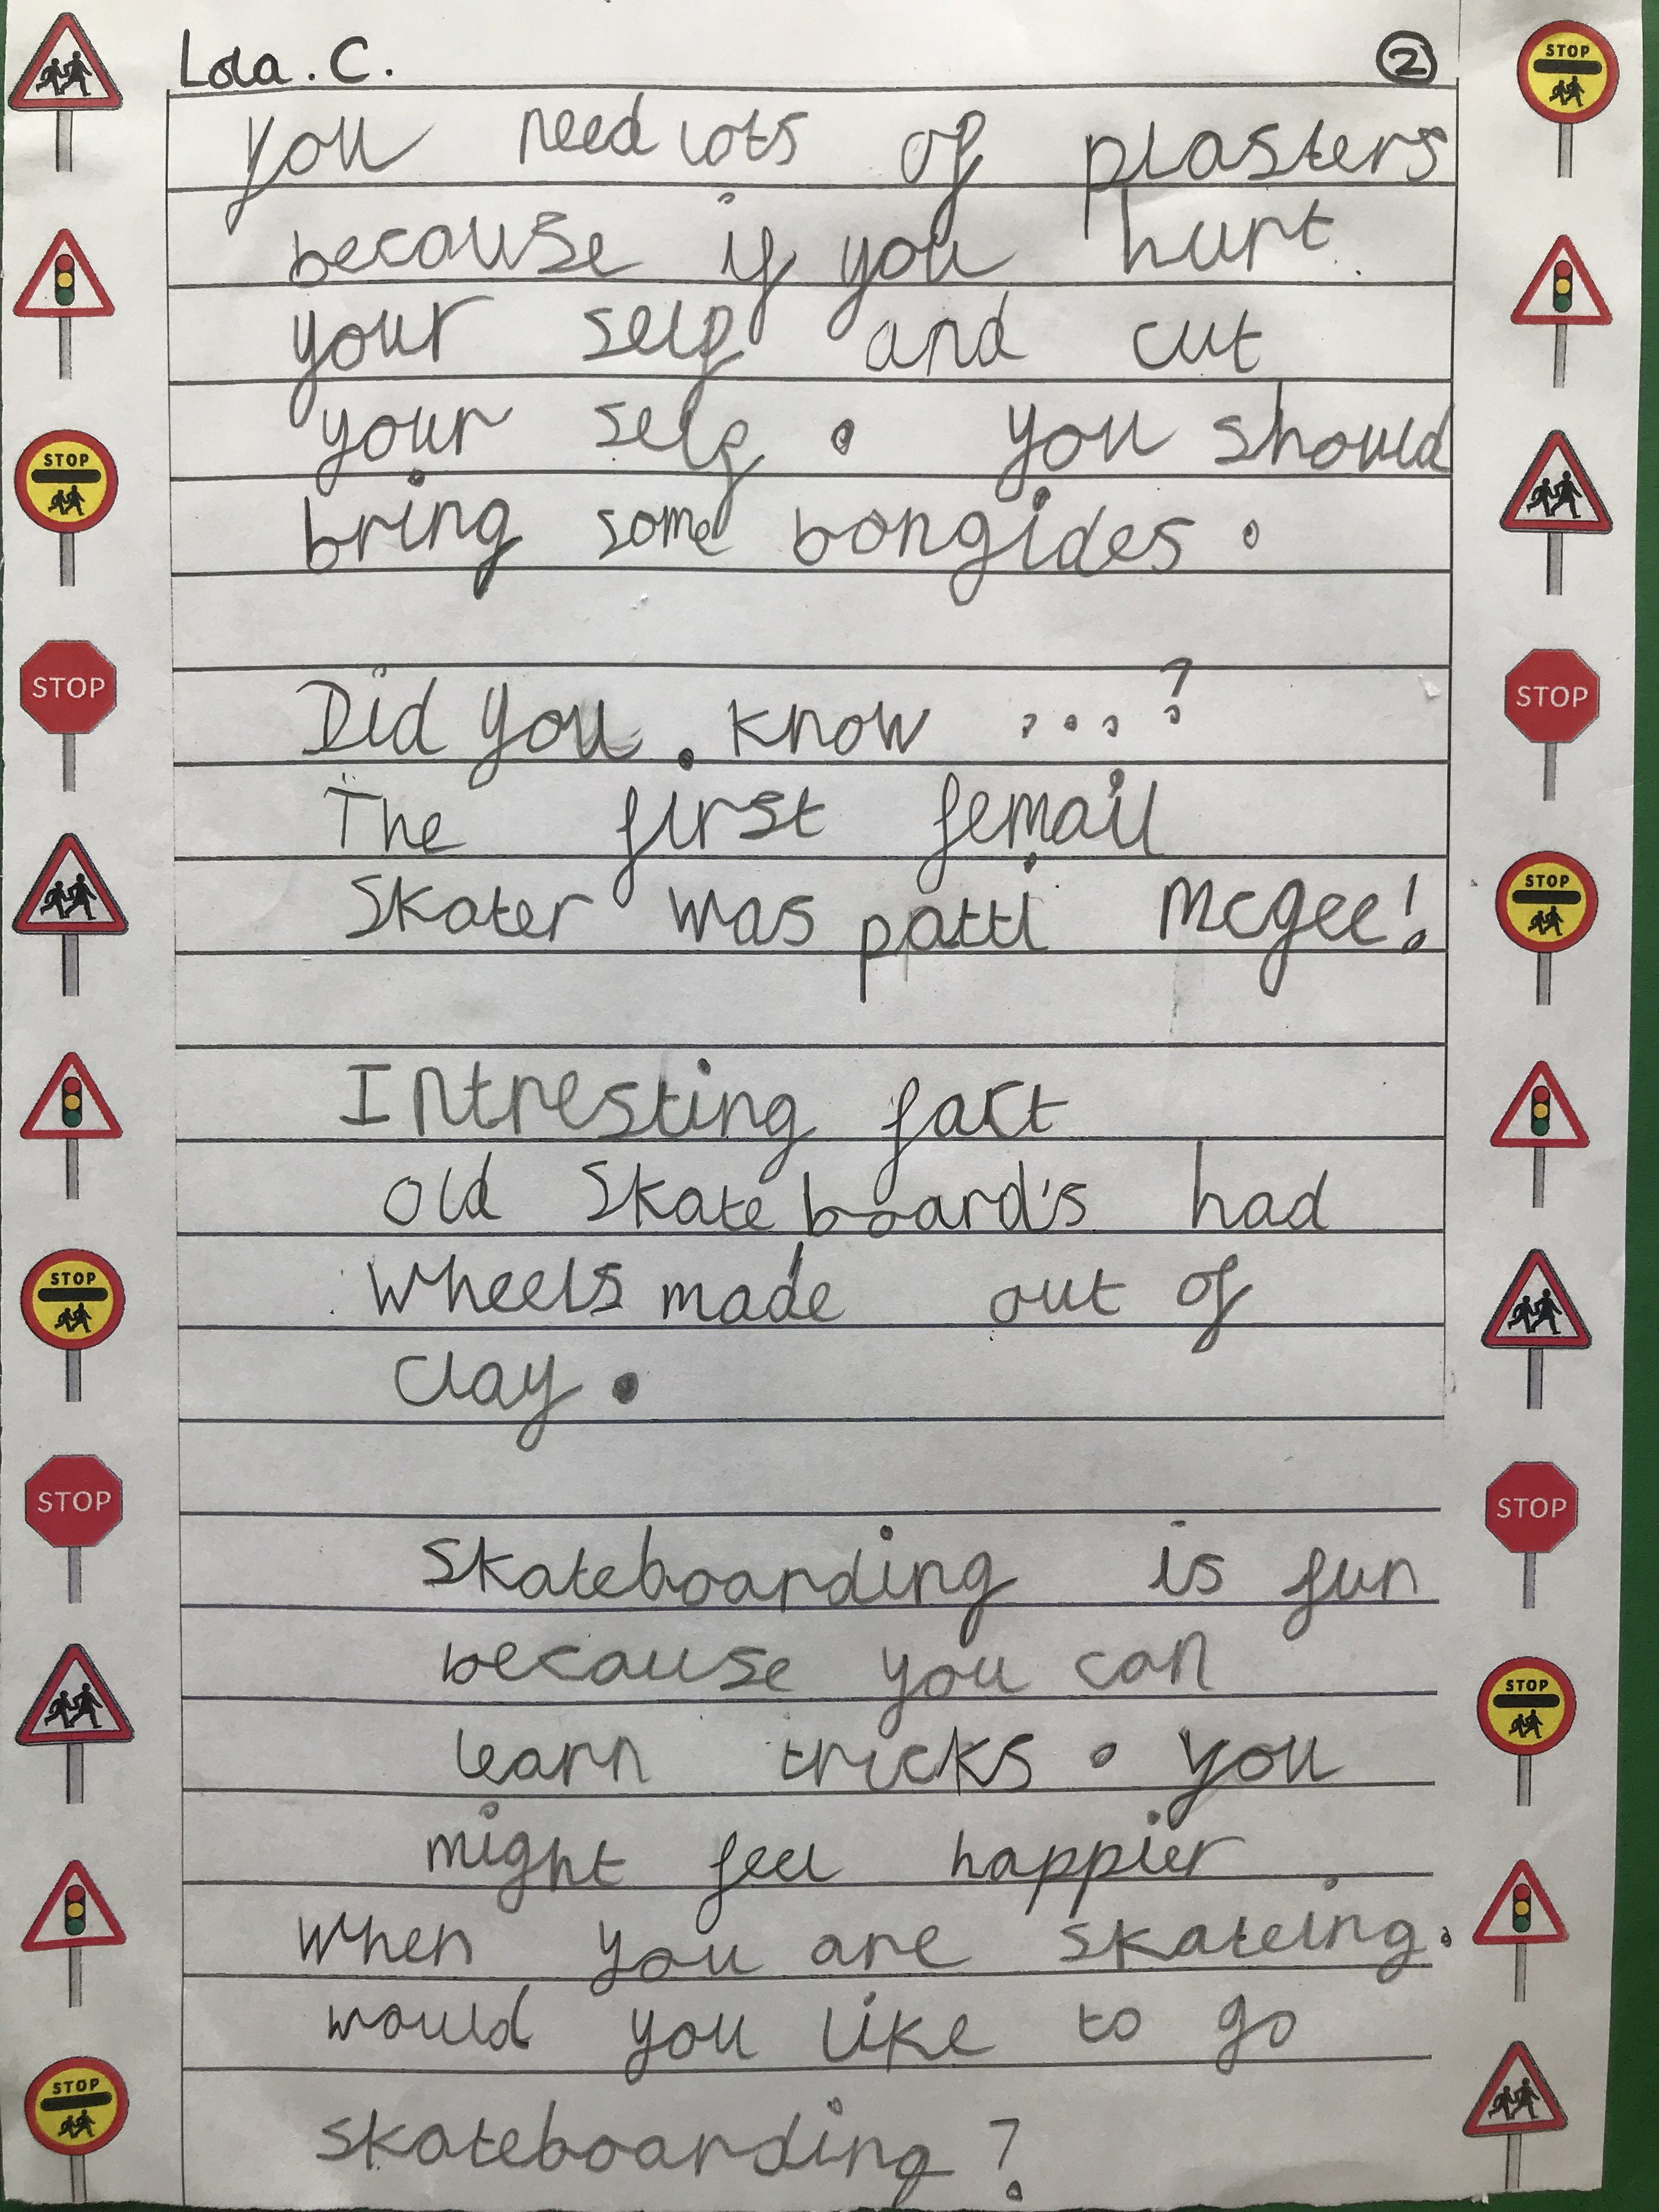 Lola . C. ②
you need lots of plasters
because if you hurt
your self and cut
your self . you should
bring some bongides .
Did you . know ...?
The first femail
Skater was patti Mcgee!
Intresting fact
old Skate board's had
wheels made out of
clay .
Skateboarding is fun
because you can
learn tricks . you
might feel happier
when you are skateing .
would you like to go
skateboarding ?
STOP
STOP
STOP
STOP
STOP
STOP
STOP
STOP
STOP
STOP